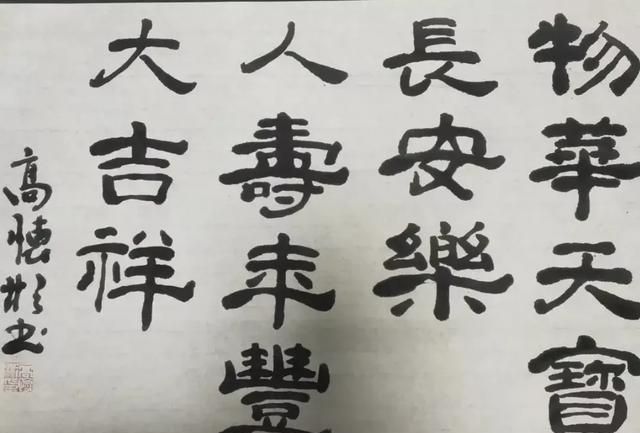 物華天寶
長安樂
人壽年豐
大吉祥
高彬书